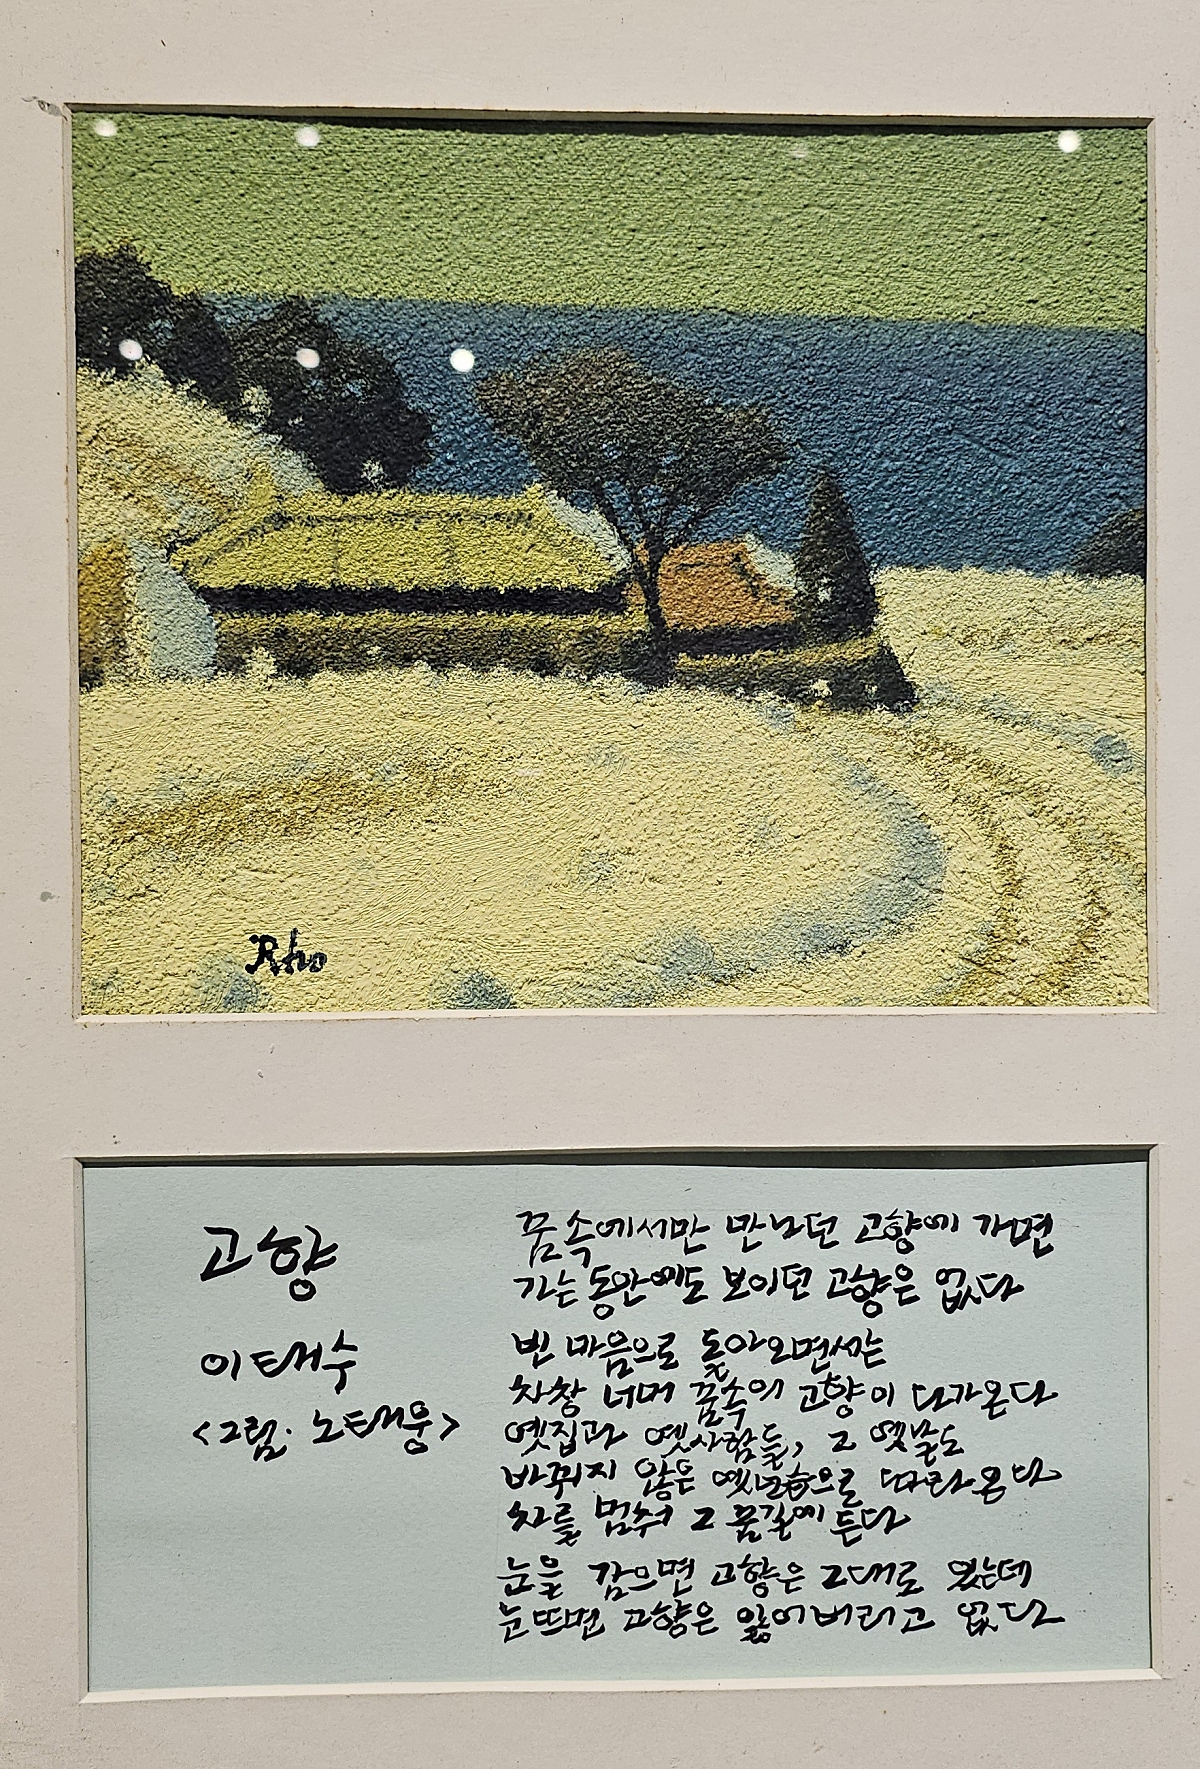 Rho
고향
이태수
<그림·노태웅>
꿈속에서만 만나던 고향에 가면
가는 동안에도 보이던 고향은 없다
빈 마음으로 돌아오면서는
차창 너머 꿈속의 고향이 다가온다
옛집과 옛사람들, 그 옛날도
바뀌지 않은 옛모습으로 따라온다
차를 멈춰 그 품길에 든다
눈을 감으면 고향은 그대로 있는데
눈 뜨면 고향은 잃어버리고 없다